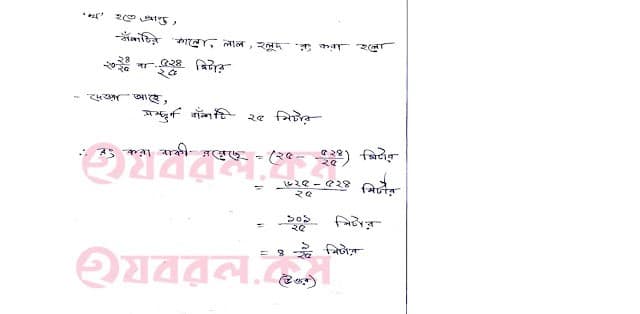 'খ' হতে প্রাপ্ত,
বাঁশটির কালো, লাল, হলুদ রং করা হলো
২০ ২৪/২৫ বা ৫২৪/২৫ মিটার
- দেওয়া আছে,
সম্পূর্ণ বাঁশটি ২৫ মিটার
∴ রং করা বাকী রয়েছে = (২৫ - ৫২৪/২৫) মিটার
= ৬২৫ - ৫২৪/২৫ মিটার
= ১০১/২৫ মিটার
= ৪ ১/২৫ মিটার
(উত্তর)
হযবরল.কম
হযবরল.কম